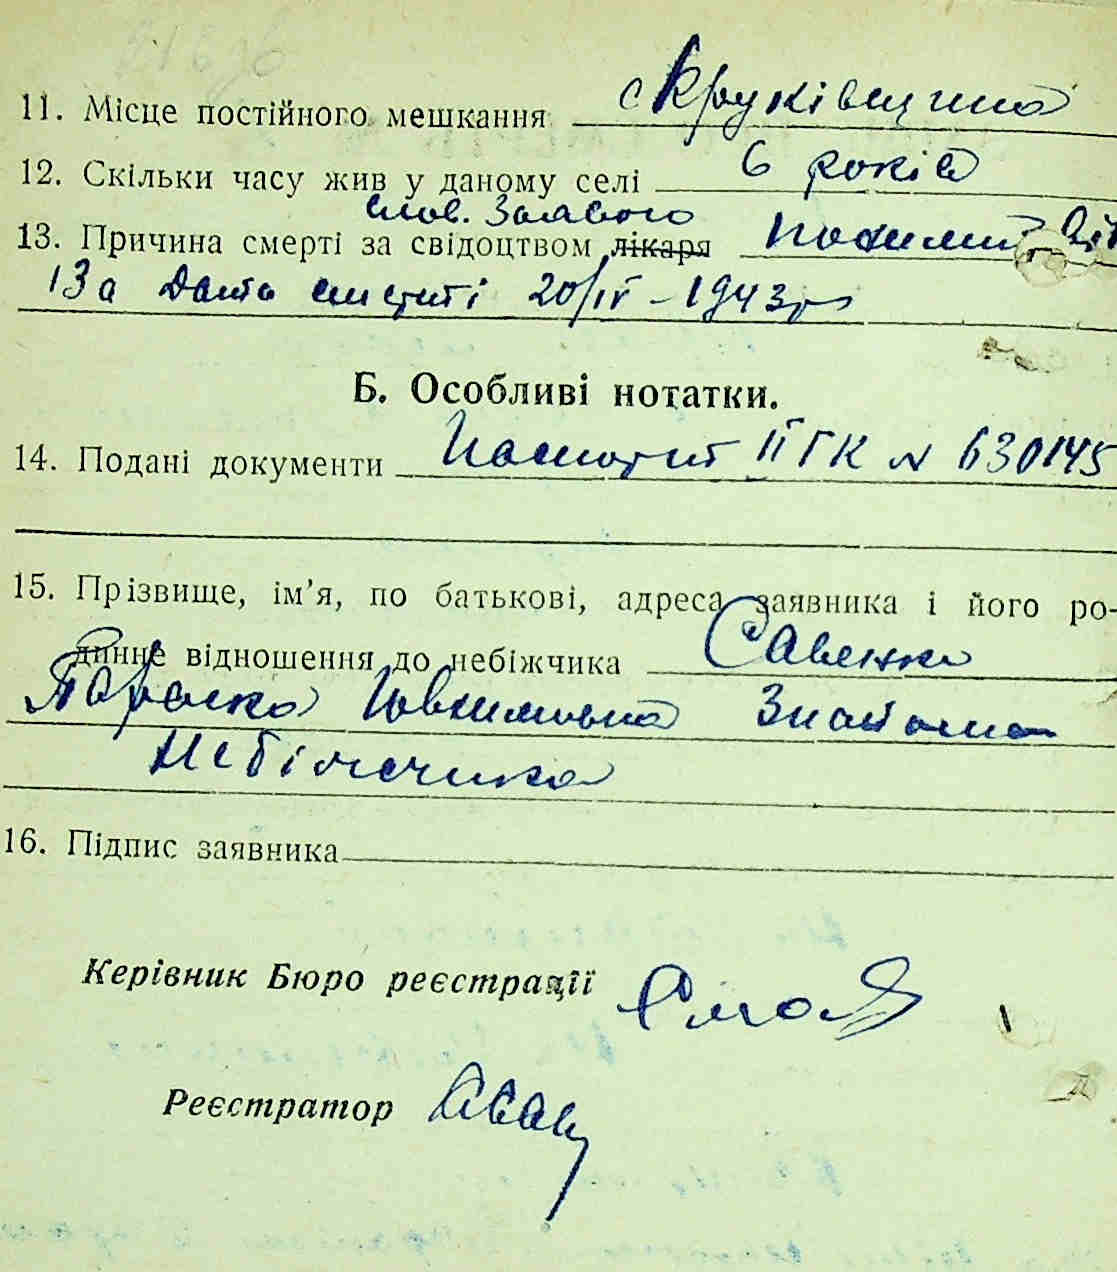 11. Місце постійного мешкання с Крюківщина
12. Скільки часу жив у даному селі 6 років
слов. Заявого
13. Причина смерті за свідоцтвом лікаря Похилий Віт
13а Дата смерті 20/IV - 1943р
Б. Особливі нотатки.
14. Подані документи Паспорт ІІ ГК № 630145
15. Прізвище, ім’я, по батькові, адреса заявника і його ро-
динне відношення до небіжчика Савенко
Параска Ювхимовна Знайома
Небіжчика
16. Підпис заявника
Керівник Бюро реєстрації
Реєстратор